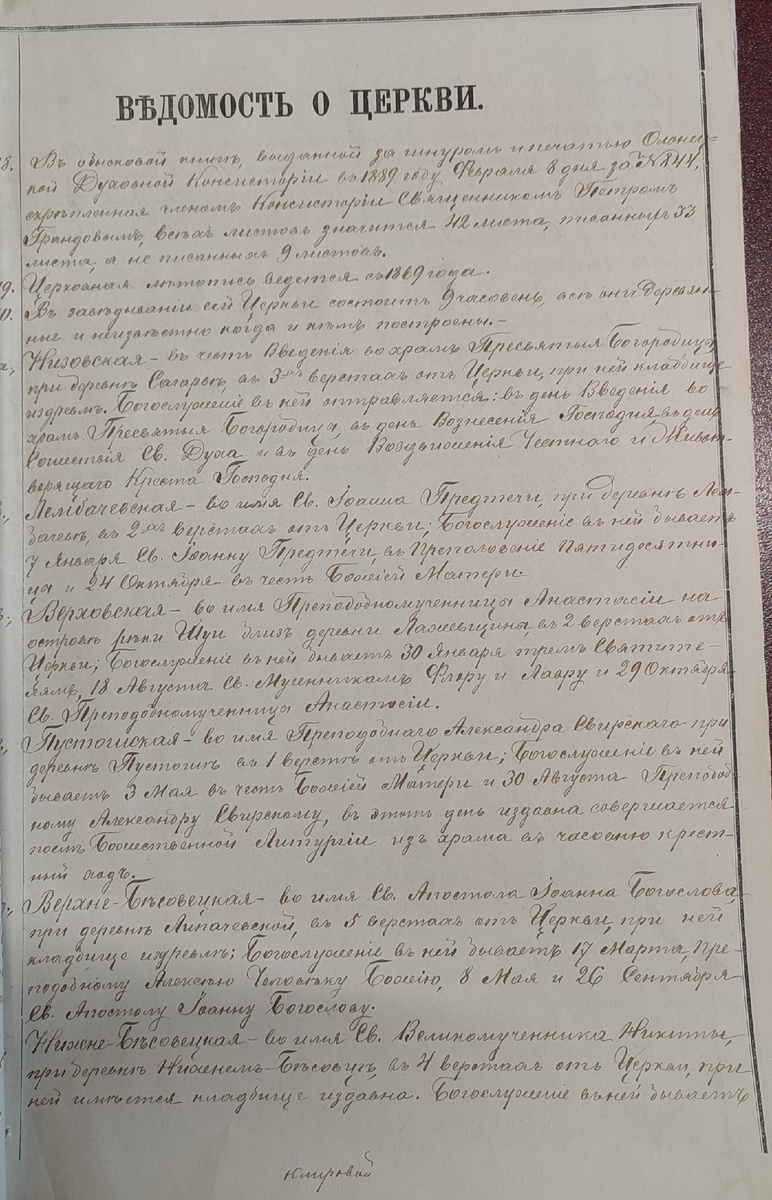 ВѢДОМОСТЬ О ЦЕРКВИ.
8. Въ обысковой книгѣ, выданной за шнуромъ и печатью Олонец-
кой Духовной Консисторіи въ 1889 году Февраля 8 дня за № 844,
скрѣпленная членомъ Консисторіи Священникомъ Петромъ
Грандовымъ, всѣхъ листовъ значится 42 листа, писанныхъ 33
листа, а не писанныхъ 9 листовъ.
9. Церковная лѣтопись ведется съ 1869 года.
0. Въ завѣдываніи сей Церкви состоитъ 9 часовенъ, всѣ они деревян-
ные и неизвѣстно когда и кѣмъ построены.-
Низовская – въ честь Введенія во храмъ Пресвятыя Богородицы,
при деревнѣ Сагарѣ, въ 3-хъ верстахъ отъ Церкви, при ней кладбище
издревле. Богослуженіе въ ней отправляется: въ день Введенія во
храмъ Пресвятыя Богородицы, въ день Вознесенія Господня, въ день
Сошествія Св. Духа и въ день Воздвиженія Честнаго и Живот-
ворящаго Креста Господня.
Лембачевская – во имя Св. Іоанна Предтечи, при деревнѣ Лем-
бачевѣ, въ 2-хъ верстахъ отъ Церкви; Богослуженіе въ ней бываетъ
7 Января Св. Іоанну Предтечи, въ Преполовеніе Пятидесятни-
цы и 24 Октября въ честь Божіей Матери.
Верховская – во имя Преподобномученницы Анастасіи на
островѣ рѣки Шуи близъ деревни Лажевщины, въ 2 верстахъ отъ
Церкви; Богослуженіе въ ней бываетъ 30 Января тремъ Святите-
лямъ, 18 Августа Св. Мученникамъ Флору и Лавру и 29 Октября
Св. Преподобномученницы Анастасіи.
Пустошская – во имя Преподобнаго Александра Свирскаго при
деревнѣ Пустошѣ въ 1 верстѣ отъ Церкви; Богослуженіе въ ней
бываетъ 3 Мая въ честь Божіей Матери и 30 Августа Преподоб-
ному Александру Свирскому, въ этотъ день издавна совершается
послѣ Божественной Литургіи изъ храма въ часовню крест-
ный ходъ.
Верхне-Бѣсовецкая – во имя Св. Апостола Іоанна Богослова,
при деревнѣ Липачевской, въ 5 верстахъ отъ Церкви, при ней
кладбище издревлѣ; Богослуженіе въ ней бываетъ 17 Марта, Пре-
подобному Алексѣю Человѣку Божію, 8 Мая и 26 Сентября
Св. Апостолу Іоанну Богослову.
Нижне-Бѣсовецкая – во имя Св. Великомученника Никиты,
при деревнѣ Нижнемъ-Бѣсовцѣ, въ 4 верстахъ отъ Церкви, при
ней имѣется кладбище издавна. Богослуженіе въ ней бываетъ